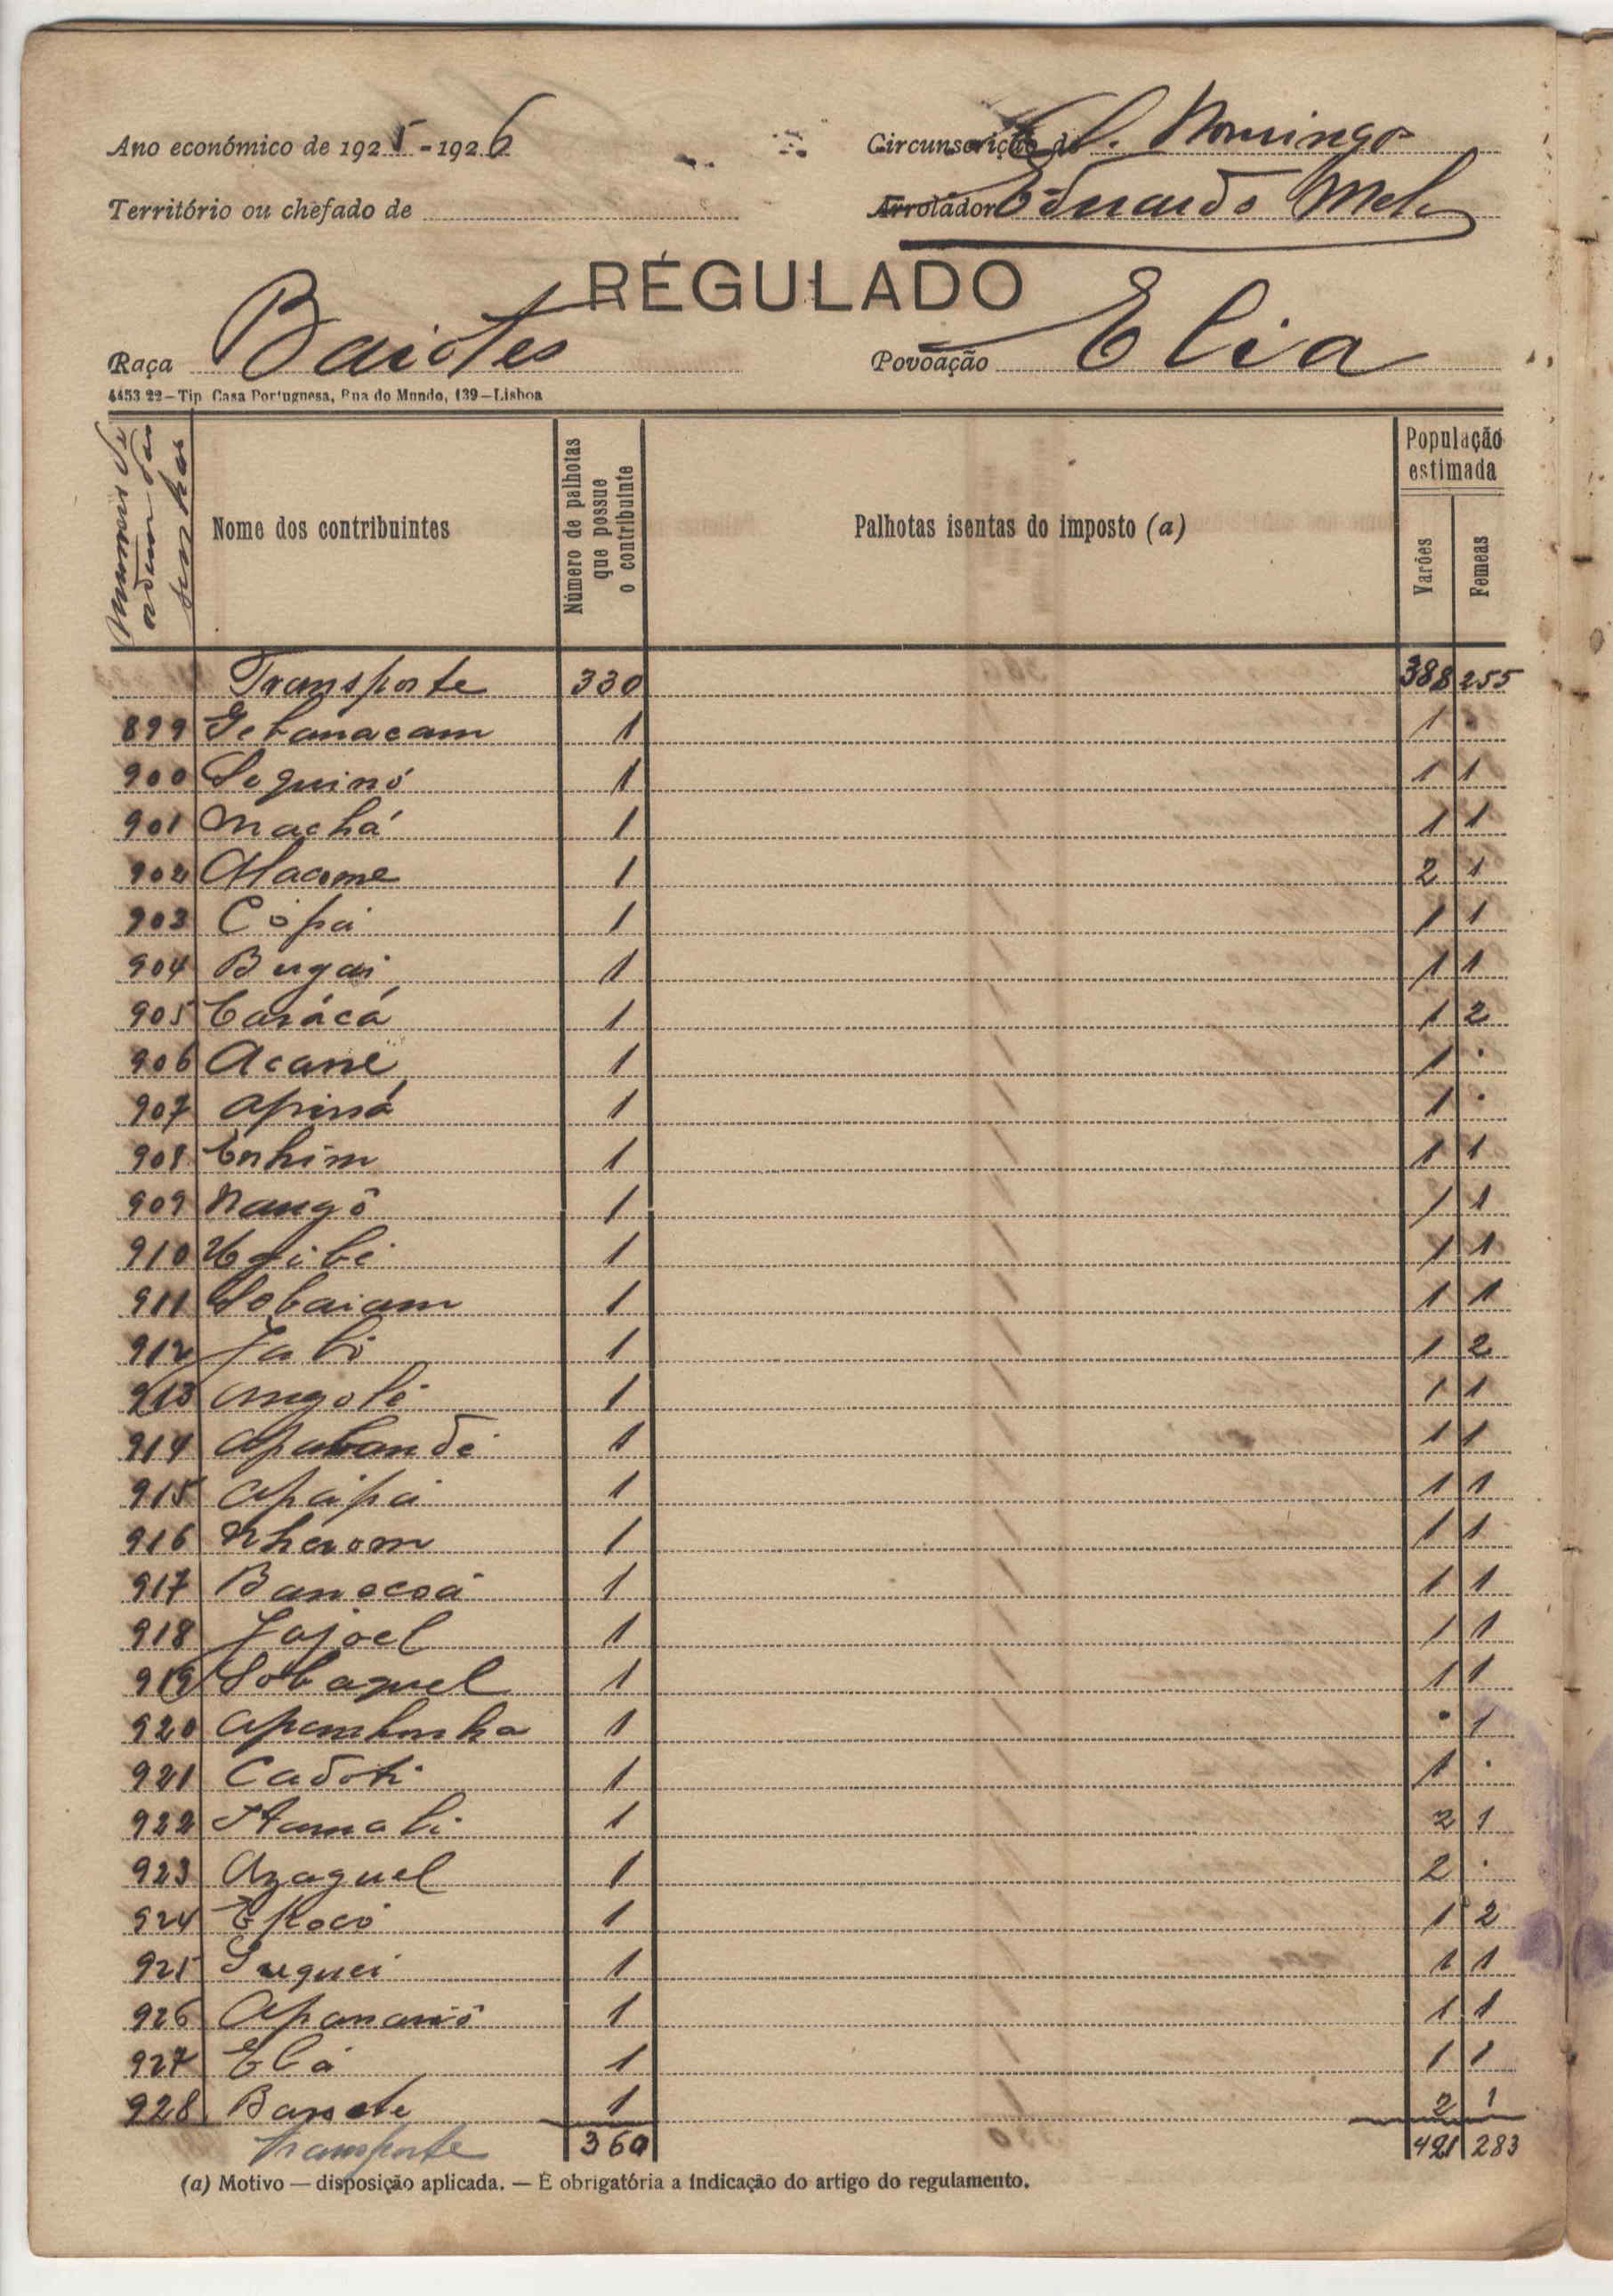 Ano económico de 1925-1926
Circunscrição de S. Domingos
Território ou chefado de
Arrolador Eduardo Melo
RÉGULADO
Raça Baiotes
Povoação Elia
4453 22—Tip. Casa Portuguesa, Rua do Mundo, 139—Lisboa
Numero de ordem das senhas
Nome dos contribuintes
Número de palhotas que possue o contribuinte
Palhotas isentas do imposto (a)
População estimada
Varões
Femeas
Transporte 330 388 255
899 1 1 .
900 Seguinó 1 1 1
901 Machá 1 1 1
902 1 2 1
903 Cópá 1 1 1
904 Bugai 1 1 1
905 Carácá 1 1 2
906 Acané 1 1 .
907 1 1 .
908 1 1 1
909 Nangô 1 1 1
910 1 1 1
911 Sobaiam 1 1 1
912 1 1 2
913 Angolé 1 1 1
914 1 1 1
915 Apápá 1 1 1
916 1 1 1
917 1 1 1
918 Jajoel 1 1 1
919 Sobaquel 1 1 1
920 1 . 1
921 1 1 .
922 1 2 1
923 Azaguel 1 2 .
924 1 1 2
925 Suguei 1 1 1
926 1 1 1
927 Elá 1 1 1
928 1 2 1
Transporte 360 421 283
(a) Motivo — disposição aplicada. — É obrigatória a indicação do artigo do regulamento.